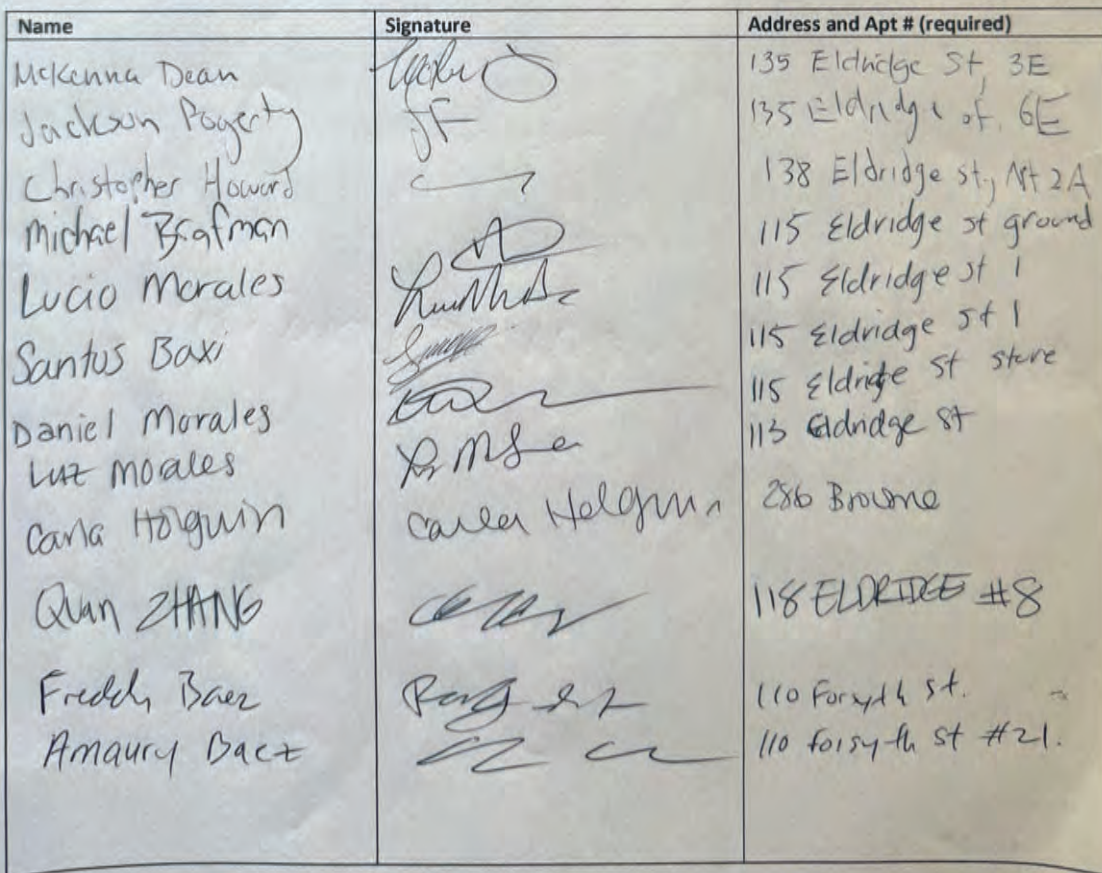 Name Signature Address and Apt # (required)
McKenna Dean 135 Eldridge St, 3E
Jackson Fogerty JF 135 Eldridge st. 6E
Christopher Howard 138 Eldridge st, Apt 2A
Michael Brafman 115 Eldridge st ground
Lucio Morales 115 Eldridge st 1
Santos Baxi 115 Eldridge st 1
Daniel Morales 115 Eldridge st store
Luz Morales 113 Eldridge St
Carla Holguin Carla Holguin 286 Broome
Quan ZHANG 118 ELDRIDGE #8
Freddy Baez 110 Forsyth st.
Amaury Baez 110 forsyth st #21.